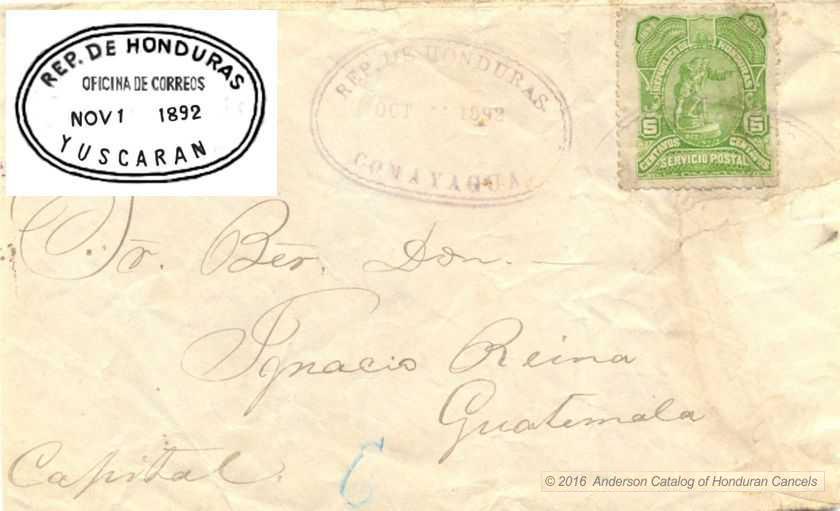 REP. DE HONDURAS
OFICINA DE CORREOS
NOV 1 1892
YUSCARAN
REP. DE HONDURAS.
OCT 1892
COMAYAGUA
REPUBLICA DE HONDURAS
5 5
CENTAVOS CENTAVOS
SERVICIO POSTAL
Sr. Bēr. Don.
Ignacio Reina
Guatemala
Capital.
© 2016 Anderson Catalog of Honduran Cancels